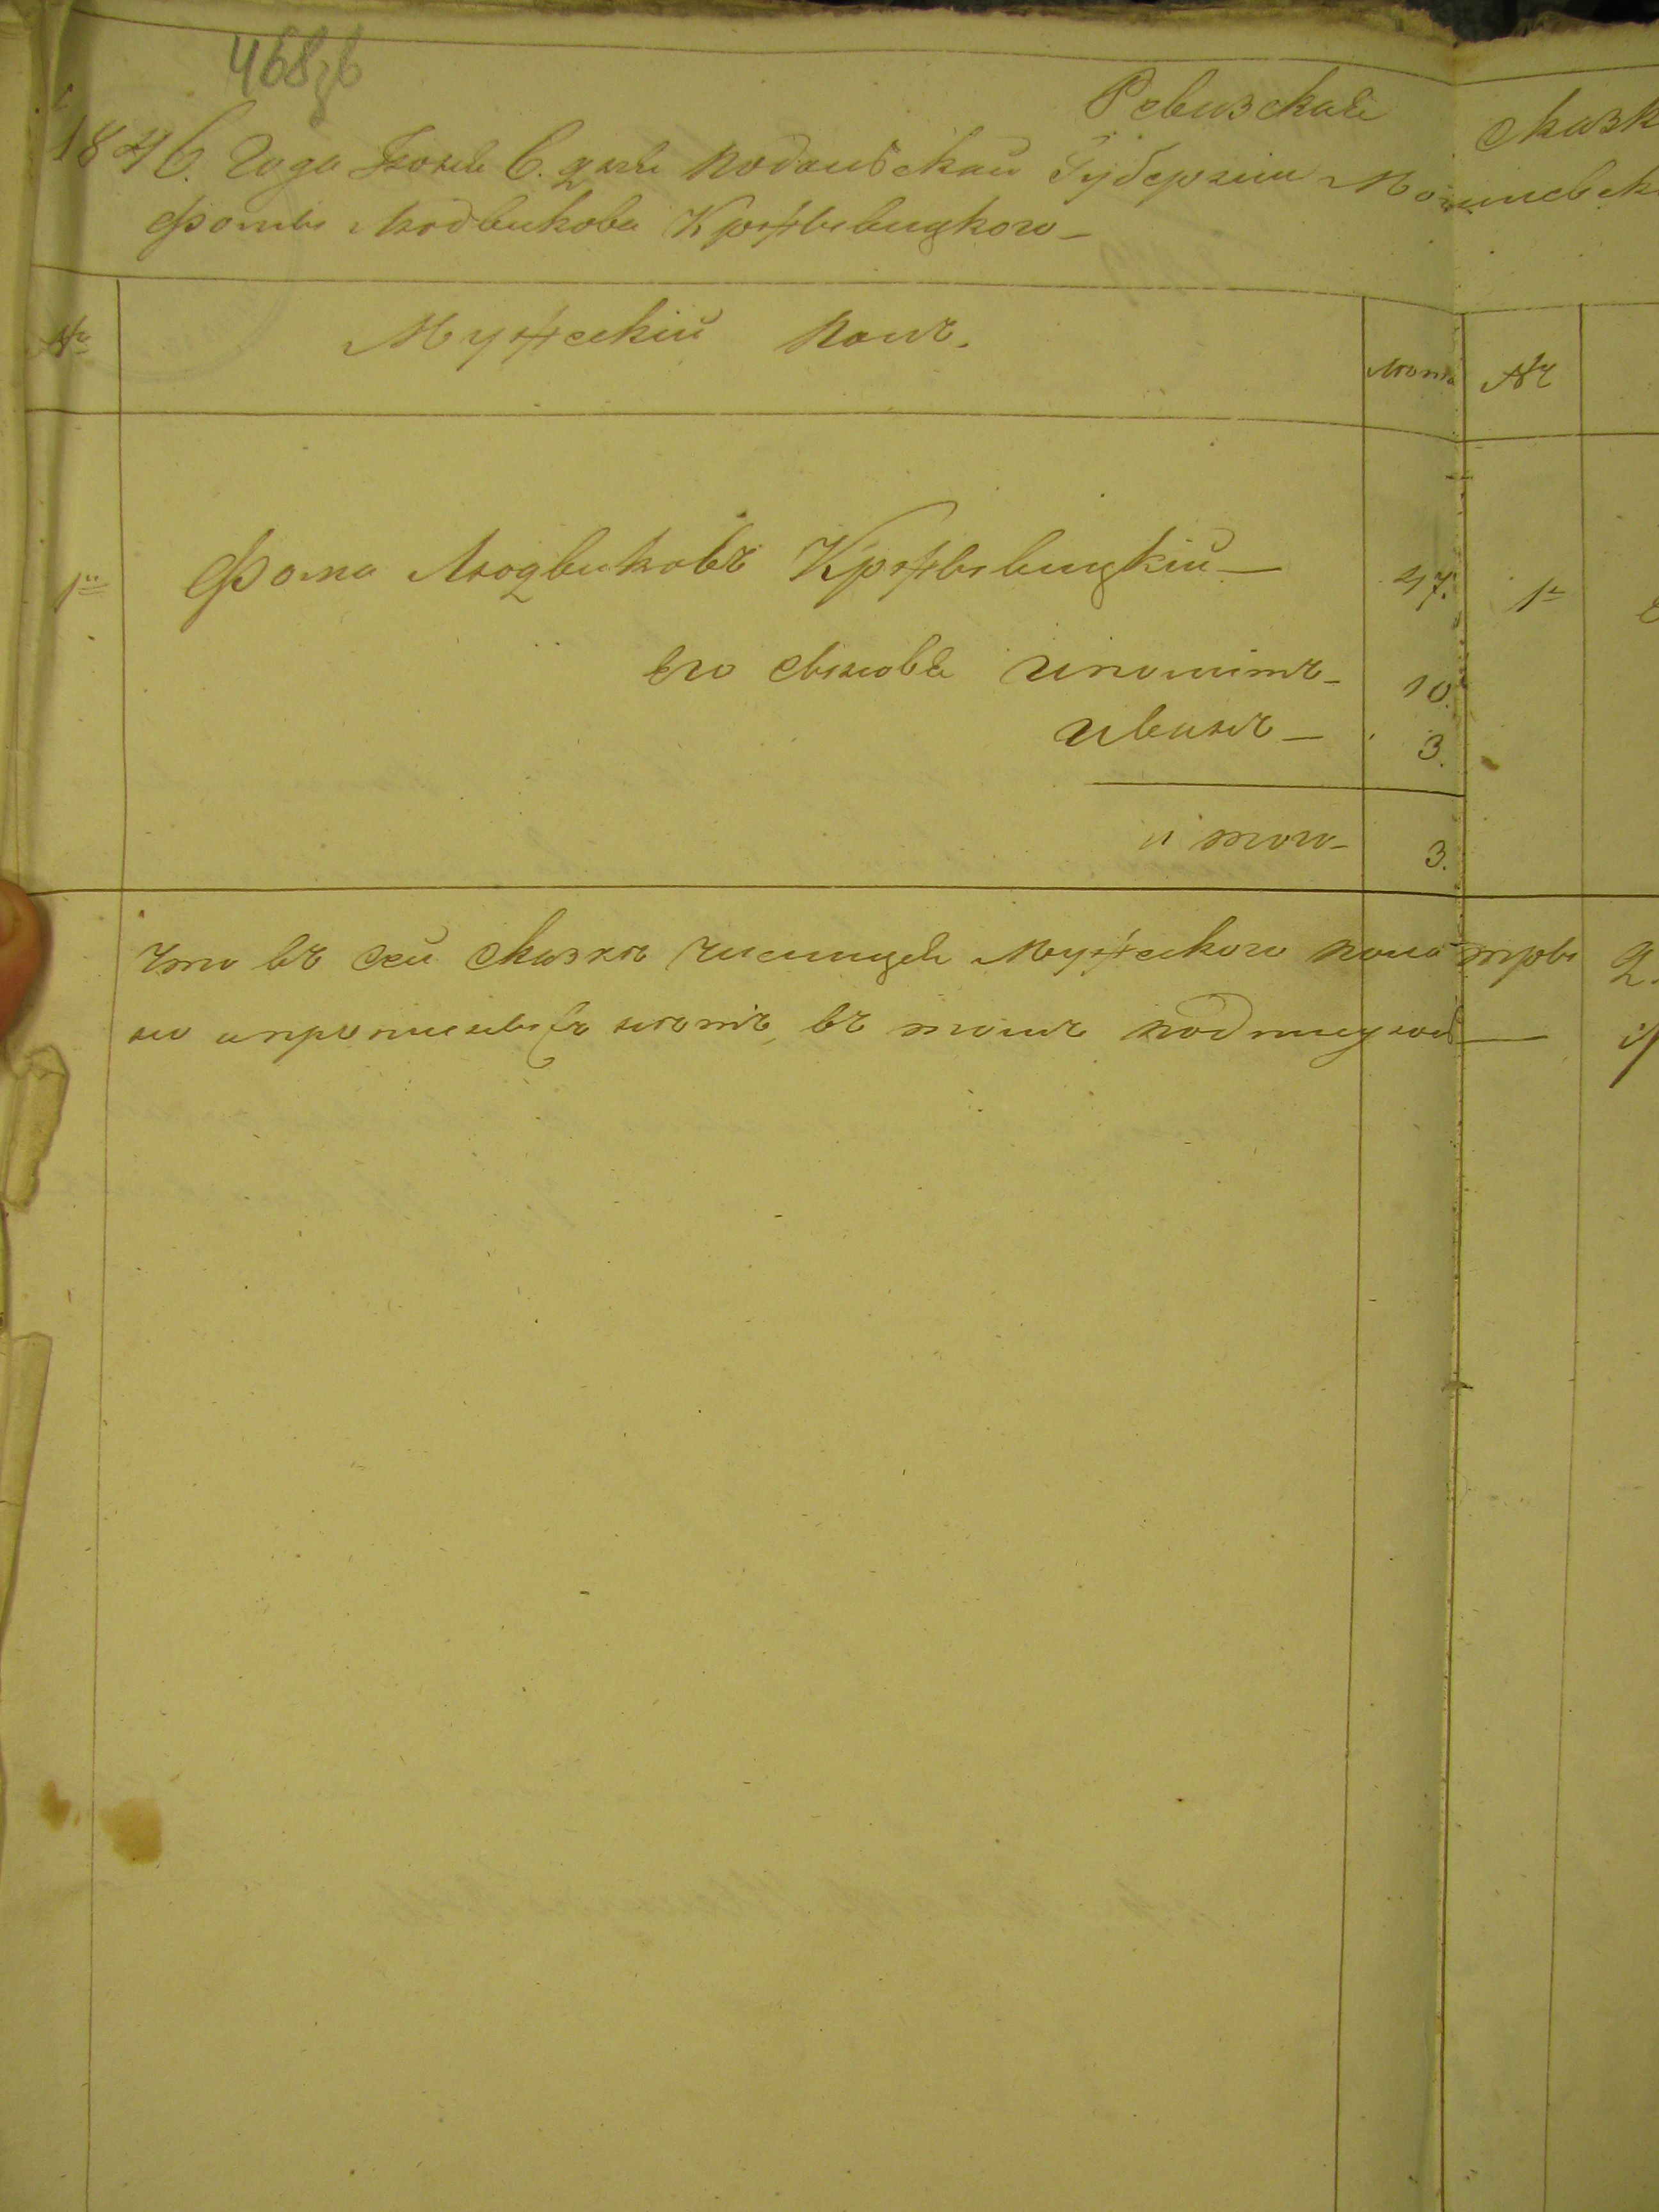 468зв
Ревизская сказк
1846. Года Июня 6. дня Подольской Губернiи Могилевск
Фомы Людвикова Кржывицкого
№ Мужескiй полъ. Лѣта №
1й Фома Людвиковъ Кржывицкiй 47. 1й
Его сыновья Иполитъ 10.
Иванъ 3.
и того 3.
Что въ сей сказкѣ числится Мужеского пола три
но и прописныхъ нѣтъ, въ томъ подписуюсь